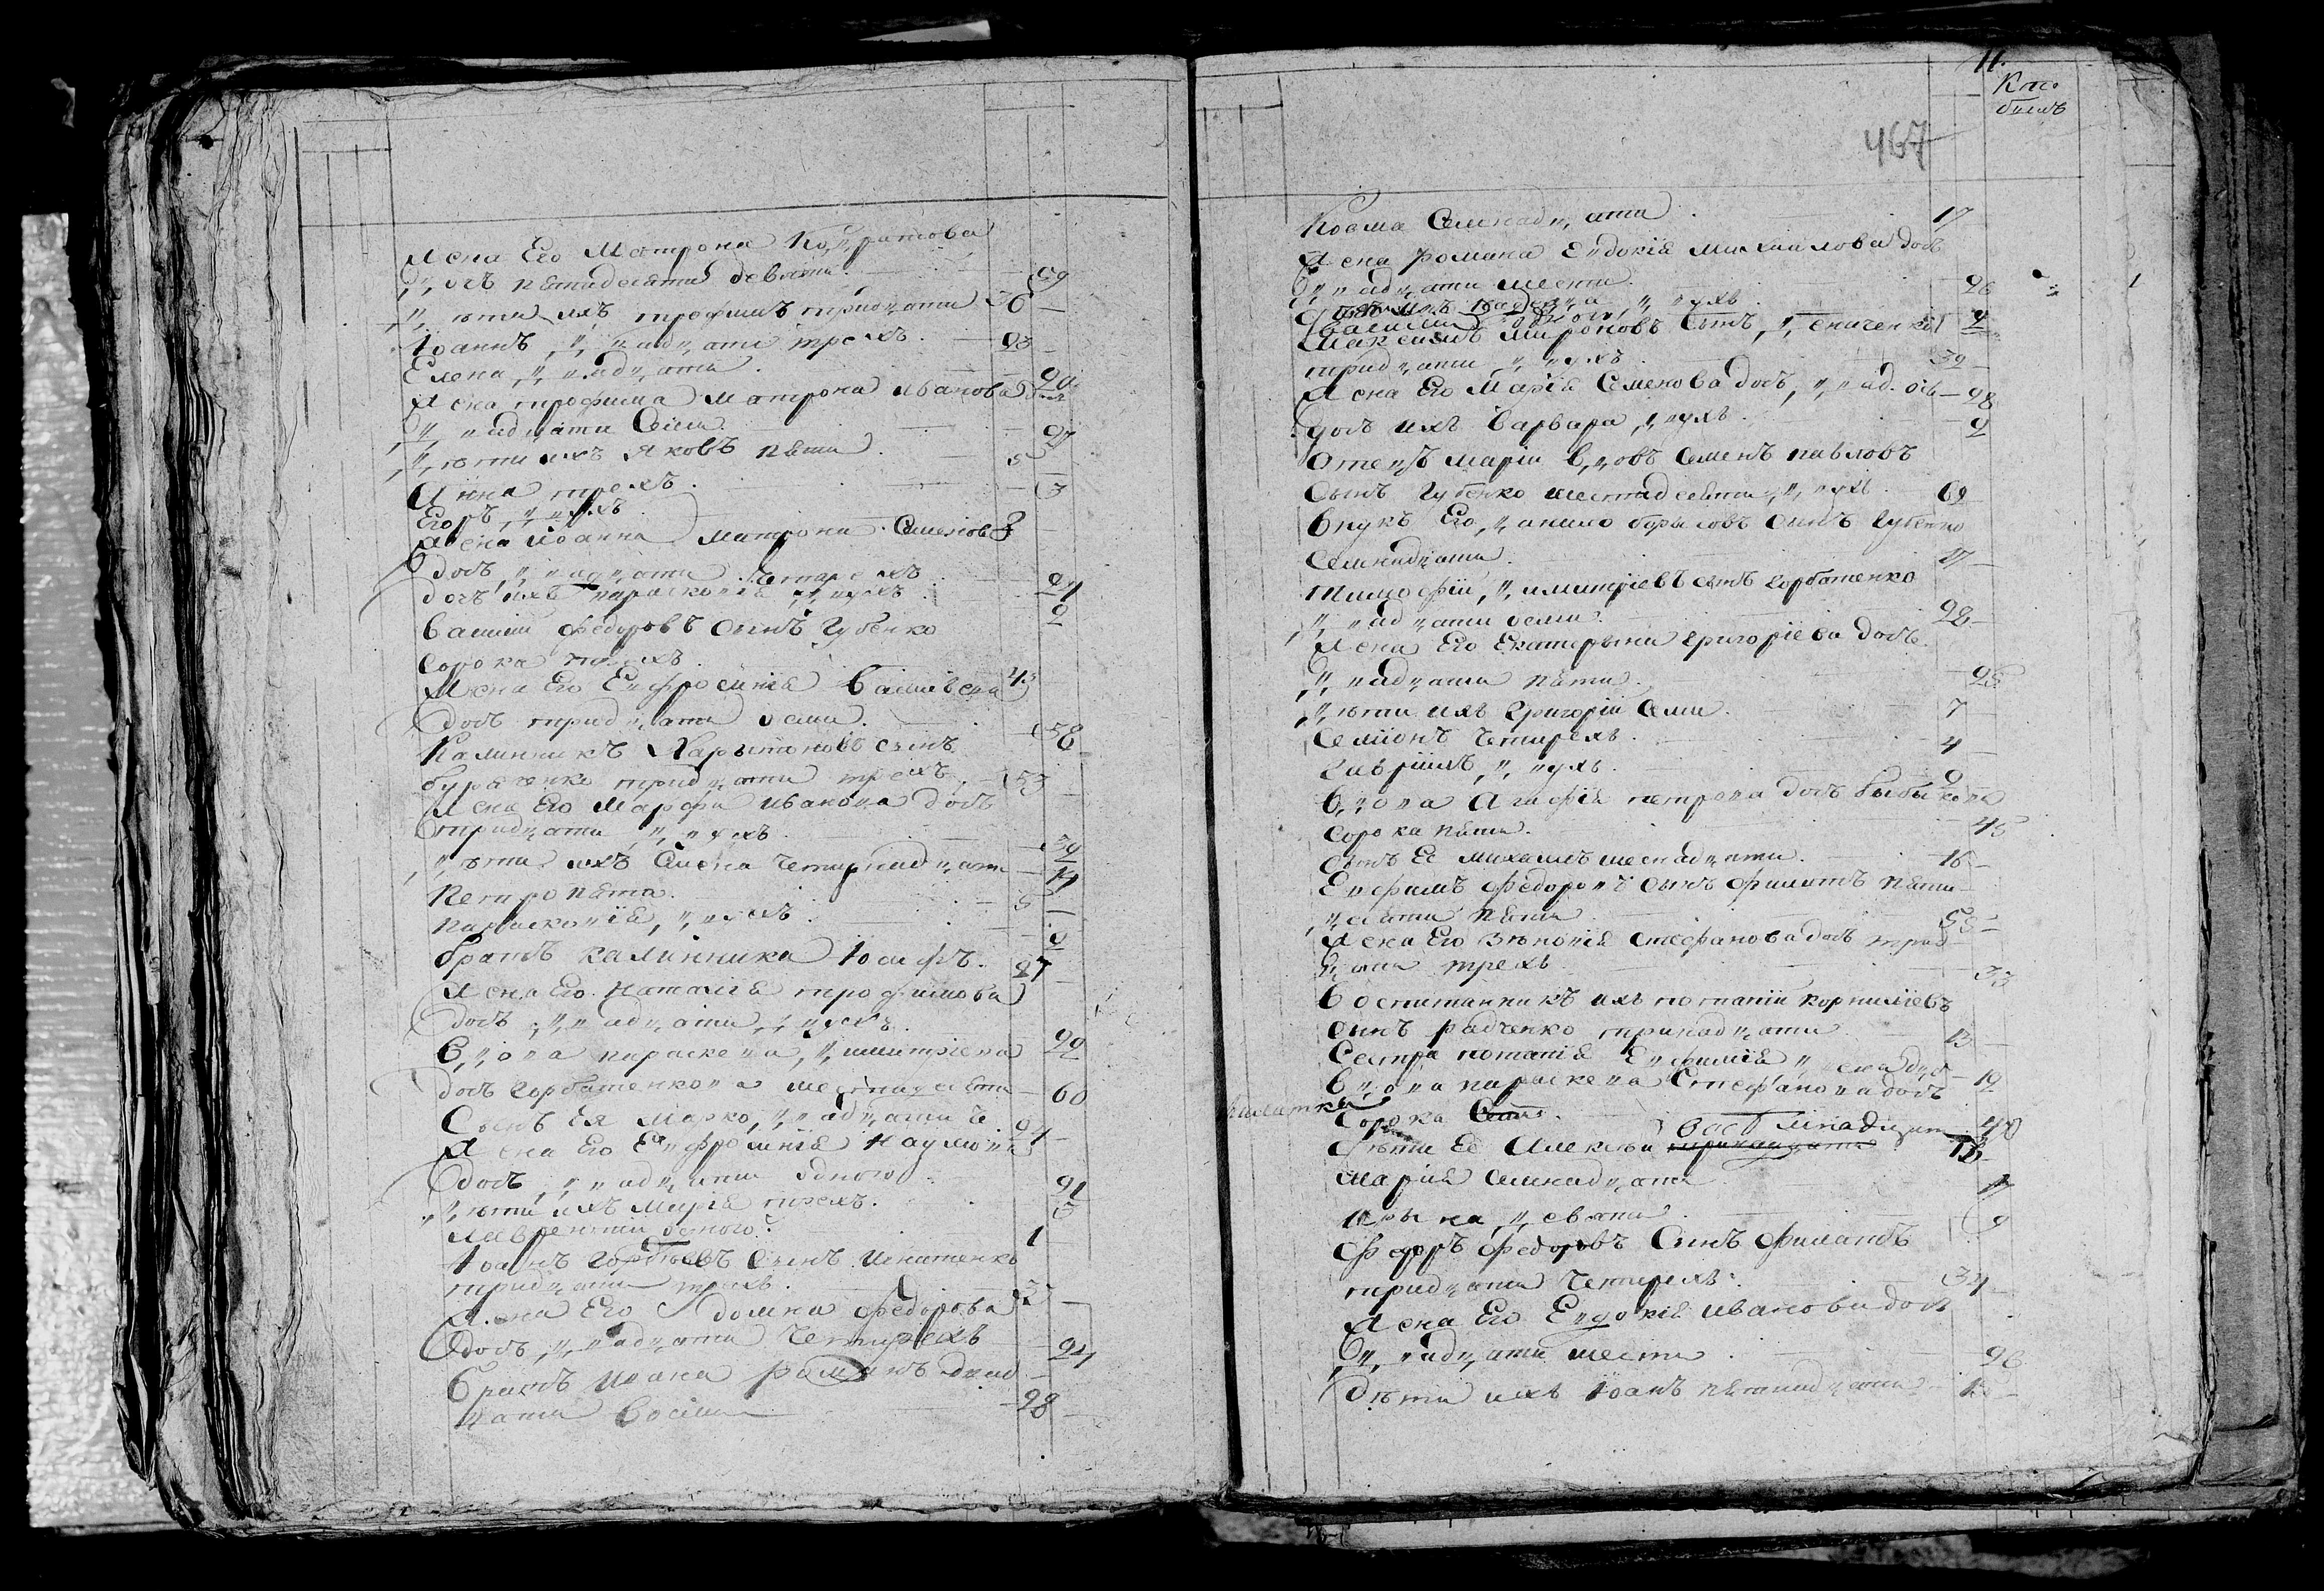 Жена Его Матрона Кондратова
дочь пятидесяти девяти 59
дети ихъ трофимъ тридцати 30
Іоаннъ двадцати трехъ 23
Елена двадцати 20
Жена трофима матрона иванова дочь
двадцати Седми 27
дети ихъ Яковъ пяти 5
Анна трехъ 3
Егоръ двухъ 2
Жена иоанна матрона Семенова
дочь двадцати четырехъ 24
дочь ихъ параскопія двухъ 2
василій федоровъ сынъ Губенко
сорока трехъ 43
Жена Его Евфросинія василіева
дочь тридцати осми 38
Калинникъ Харытоновъ сынъ
тридцати трехъ 33
Жена Его Марфа иванова дочь
тридцати двухъ 32
дети ихъ четырнадцати 14
петро пяти 5
параскопія двухъ 2
братъ калинника Іосифъ 27
Жена Его Наталія трофимова
дочь двадцати двухъ 22
вдова параскева димитріева
дочь Горбатенкова шестидесяти 60
Сынъ Ея Марко двадцати ч. 24
Жена Его Евфросинія Наумова
дочь двадцати одного 21
дети ихъ Марія трехъ 3
лаврентій одного 1
Іоаннъ сынъ игнатенко
тридцати трехъ 33
Жена Его домна федорова
дочь двадцати четырехъ 24
братъ иоана романъ двад
цати восіми 28
11.
Кто
билъ
467
Косма Семнадцати 17
Жена романа Евдокія михаилова дочь
двадцати шести 26
василій одного
Максимъ мироновъ сынъ
тридцати двухъ 32
Жена Его Марія Семенова дочь двад. ось 28
дочь ихъ варвара двухъ 2
Отецъ маріи вдовъ Семенъ павловъ
сынъ Губенко шестидесяти двухъ 62
внукъ Его данило борисовъ сынъ Губенко
Семнадцати 17
Тимофій димитріевъ сынъ горбатенко
двадцати осми 28
Жена Его Екатерына григоріева дочь
двадцати пяти 25
дети ихъ Григорій Семи 7
Семіонъ четырехъ 4
гавріилъ двухъ 2
вдова Агафія петрова дочь
сорока пяти 45
сынъ Ее михаилъ шеснадцати 16
Евфимъ федоровъ сынъ филатъ пяти
десяти пяти 55
Жена Его Зѣновія стефанова дочь трид
цати трехъ 33
воспитанникъ ихъ потапій корниліевъ
сынъ радченко тринадцати 13
Сестра потапія Евфимія двенадцат 12
вдова параскева Стефанова дочь
филатка сорока 40
дѣти Ее Алексѣй тринадцати восімнадцати 18
марія семнадцати 17
ирына девяти 9
федоръ федоровъ Сынъ филатъ
тридцати четырехъ 34
Жена Его Евдокія иванова дочь
двадцати шести 26
дѣти ихъ Іоанъ пятнадцати 15